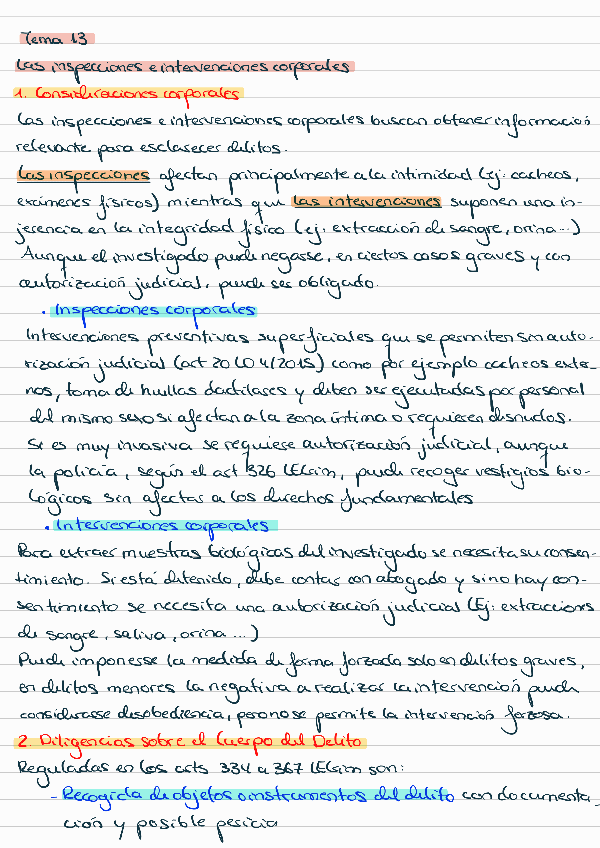 Tema 13
Las inspecciones e intervenciones corporales
1. Consideraciones corporales
Las inspecciones e intervenciones corporales buscan obtener información
relevante para esclarecer delitos.
Las inspecciones afectan principalmente a la intimidad (ej: cacheos,
exámenes físicos) mientras que las intervenciones suponen una in-
jerencia en la integridad física (ej: extracción de sangre, orina...)
Aunque el investigado puede negarse, en ciertos casos graves y con
autorización judicial, puede ser obligado.
• Inspecciones corporales
Intervenciones preventivas superficiales que se permiten sin auto-
rización judicial (art 20 LO 4/2015) como por ejemplo cacheos exter-
nos, toma de huellas dactilares y deben ser ejecutadas por personal
del mismo sexo si afectan a la zona íntima o requieren desnudos.
Si es muy invasiva se requiere autorización judicial, aunque
la policía, según el art 326 LECrim, puede recoger vestigios bio-
lógicos sin afectar a los derechos fundamentales
• Intervenciones corporales
Para extraer muestras biológicas del investigado se necesita su consen-
timiento. Si está detenido, debe contar con abogado y si no hay con-
sentimiento se necesita una autorización judicial (Ej: extracciones
de sangre, saliva, orina...)
Puede imponerse la medida de forma forzada solo en delitos graves,
en delitos menores la negativa a realizar la intervención puede
considerarse desobediencia, pero no se permite la intervención forzosa.
2. Diligencias sobre el Cuerpo del Delito
Reguladas en los arts 334 a 367 LECrim son:
- Recogida de objetos o instrumentos del delito con documenta
ción y posible pericia